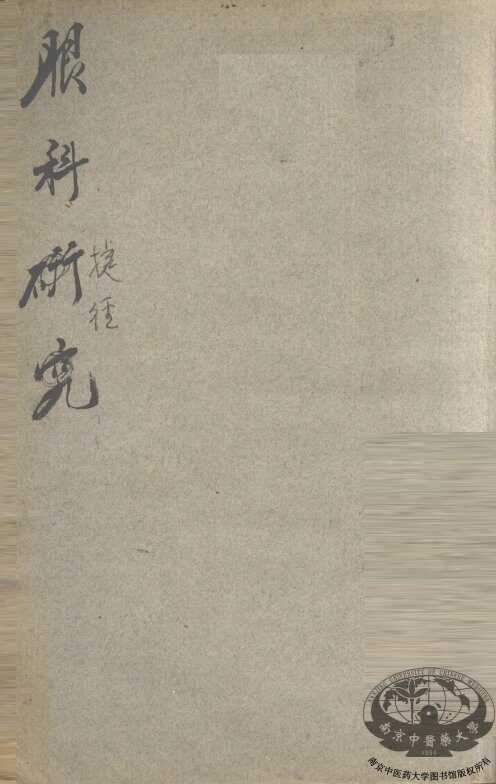 眼科研究
捷径
NANJING UNIVERSITY OF CHINESE MEDICINE
南京中醫藥大學
1954
南京中医药大学图书馆版权所有